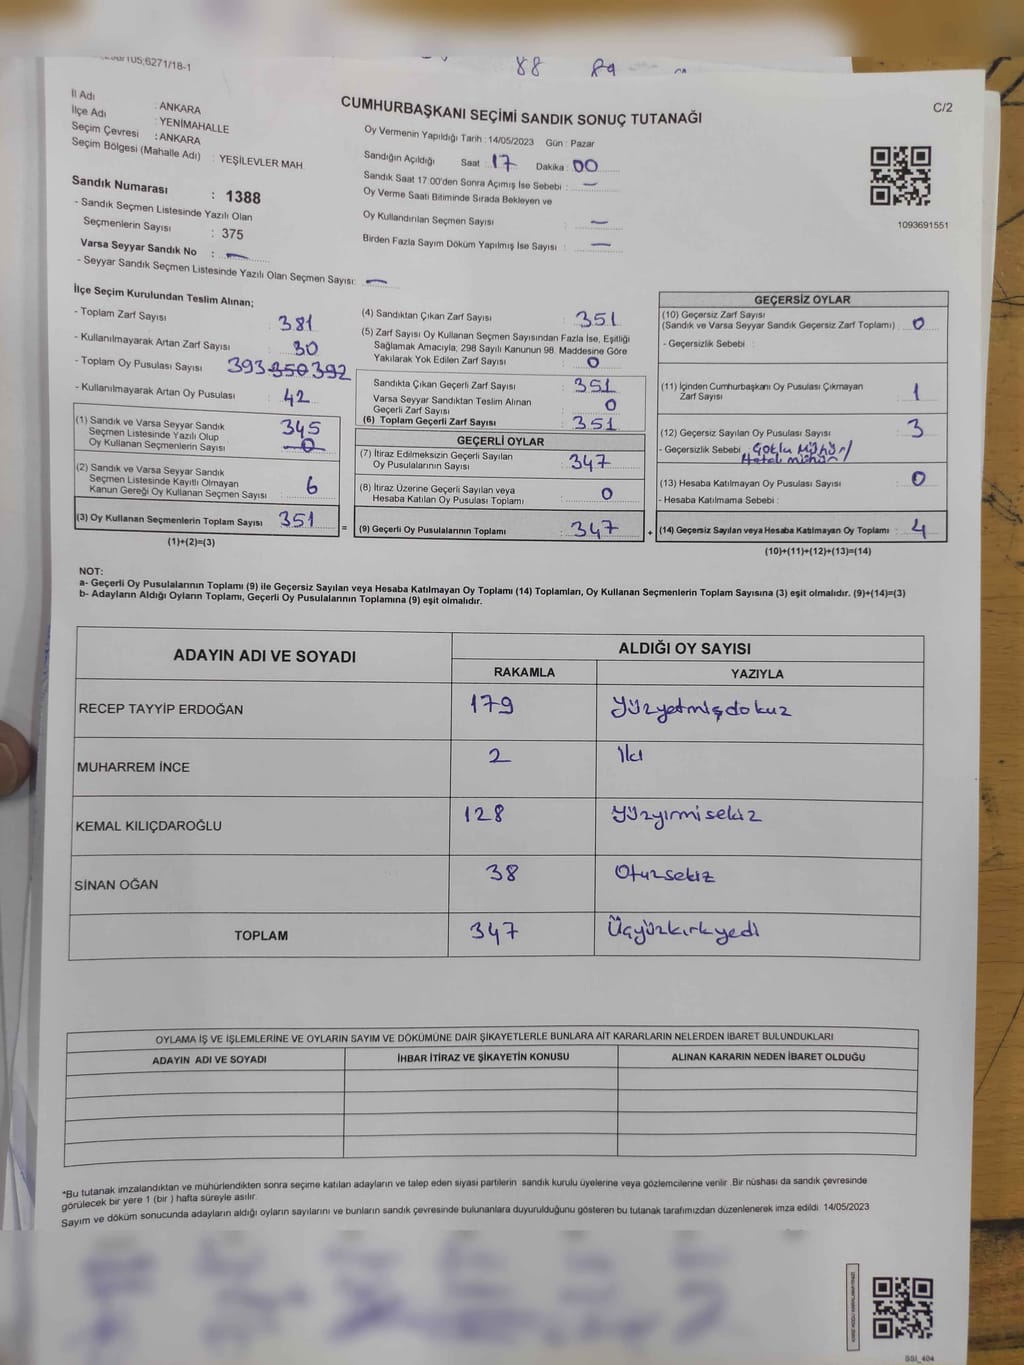 6271/18-1
88 89
İl Adı : ANKARA
İlçe Adı : YENİMAHALLE
Seçim Çevresi : ANKARA
Seçim Bölgesi (Mahalle Adı) : YEŞİLEVLER MAH.
Sandık Numarası : 1388
- Sandık Seçmen Listesinde Yazılı Olan
Seçmenlerin Sayısı : 375
Varsa Seyyar Sandık No : —
- Seyyar Sandık Seçmen Listesinde Yazılı Olan Seçmen Sayısı: —
CUMHURBAŞKANI SEÇİMİ SANDIK SONUÇ TUTANAĞI
C/2
Oy Vermenin Yapıldığı Tarih : 14/05/2023 Gün : Pazar
Sandığın Açıldığı Saat : 17 Dakika : 00
Sandık Saat 17:00'den Sonra Açımış İse Sebebi : —
Oy Verme Saati Bitiminde Sırada Bekleyen ve
Oy Kullandırılan Seçmen Sayısı : —
Birden Fazla Sayım Döküm Yapılmış İse Sayısı : —
1093691551
İlçe Seçim Kurulundan Teslim Alınan;
- Toplam Zarf Sayısı : 381
- Kullanılmayarak Artan Zarf Sayısı : 30
- Toplam Oy Pusulası Sayısı : 393 350 392
- Kullanılmayarak Artan Oy Pusulası : 42
(1) Sandık ve Varsa Seyyar Sandık
Seçmen Listesinde Yazılı Olup
Oy Kullanan Seçmenlerin Sayısı : 345 0
(2) Sandık ve Varsa Seyyar Sandık
Seçmen Listesinde Kayıtlı Olmayan
Kanun Gereği Oy Kullanan Seçmen Sayısı : 6
(3) Oy Kullanan Seçmenlerin Toplam Sayısı : 351 =
(1)+(2)=(3)
(4) Sandıktan Çıkan Zarf Sayısı : 351
(5) Zarf Sayısı Oy Kullanan Seçmen Sayısından Fazla İse, Eşitliği
Sağlamak Amacıyla, 298 Sayılı Kanunun 98. Maddesine Göre
Yakılarak Yok Edilen Zarf Sayısı : 0
Sandıkta Çıkan Geçerli Zarf Sayısı : 351
Varsa Seyyar Sandıktan Teslim Alınan
Geçerli Zarf Sayısı : 0
(6) Toplam Geçerli Zarf Sayısı : 351
GEÇERLİ OYLAR
(7) İtiraz Edilmeksizin Geçerli Sayılan
Oy Pusulalarının Sayısı : 347
(8) İtiraz Üzerine Geçerli Sayılan veya
Hesaba Katılan Oy Pusulası Toplamı : 0
(9) Geçerli Oy Pusulalarının Toplamı : 347 +
GEÇERSİZ OYLAR
(10) Geçersiz Zarf Sayısı
(Sandık ve Varsa Seyyar Sandık Geçersiz Zarf Toplamı) : 0
- Geçersizlik Sebebi :
(11) İçinden Cumhurbaşkanı Oy Pusulası Çıkmayan
Zarf Sayısı : 1
(12) Geçersiz Sayılan Oy Pusulası Sayısı : 3
- Geçersizlik Sebebi : Mühür/
(13) Hesaba Katılmayan Oy Pusulası Sayısı : 0
- Hesaba Katılmama Sebebi :
(14) Geçersiz Sayılan veya Hesaba Katılmayan Oy Toplamı : 4
(10)+(11)+(12)+(13)=(14)
NOT:
a- Geçerli Oy Pusulalarının Toplamı (9) ile Geçersiz Sayılan veya Hesaba Katılmayan Oy Toplamı (14) Toplamları, Oy Kullanan Seçmenlerin Toplam Sayısına (3) eşit olmalıdır. (9)+(14)=(3)
b- Adayların Aldığı Oyların Toplamı, Geçerli Oy Pusulalarının Toplamına (9) eşit olmalıdır.
ADAYIN ADI VE SOYADI ALDIĞI OY SAYISI
RAKAMLA YAZIYLA
RECEP TAYYİP ERDOĞAN 179 Yüzyetmişdokuz
MUHARREM İNCE 2 İki
KEMAL KILIÇDAROĞLU 128 Yüzyirmisekiz
SİNAN OĞAN 38 Otuzsekiz
TOPLAM 347 Üçyüzkırkyedi
OYLAMA İŞ VE İŞLEMLERİNE VE OYLARIN SAYIM VE DÖKÜMÜNE DAİR ŞİKAYETLERLE BUNLARA AİT KARARLARIN NELERDEN İBARET BULUNDUKLARI
ADAYIN ADI VE SOYADI İHBAR İTİRAZ VE ŞİKAYETİN KONUSU ALINAN KARARIN NEDEN İBARET OLDUĞU
*Bu tutanak imzalandıktan ve mühürlendikten sonra seçime katılan adayların ve talep eden siyasi partilerin sandık kurulu üyelerine veya gözlemcilerine verilir .Bir nüshası da sandık çevresinde
görülecek bir yere 1 (bir ) hafta süreyle asılır.
Sayım ve döküm sonucunda adayların aldığı oyların sayılarını ve bunların sandık çevresinde bulunanlara duyurulduğunu gösteren bu tutanak tarafımızdan düzenlenerek imza edildi. 14/05/2023
SSI_404